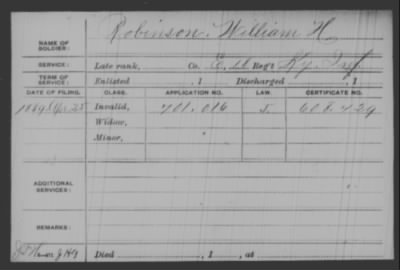 NAME OF SOLDIER: Robinson, William H.
SERVICE: Late rank, Co. Reg't Ky. Inf.
TERM OF SERVICE: Enlisted , 1 Discharged , 1
DATE OF FILING. CLASS. APPLICATION NO. LAW. CERTIFICATE NO.
1889 Invalid, 701.016 608.429
Widow,
Minor,
ADDITIONAL SERVICES:
REMARKS:
Died , 1 , at